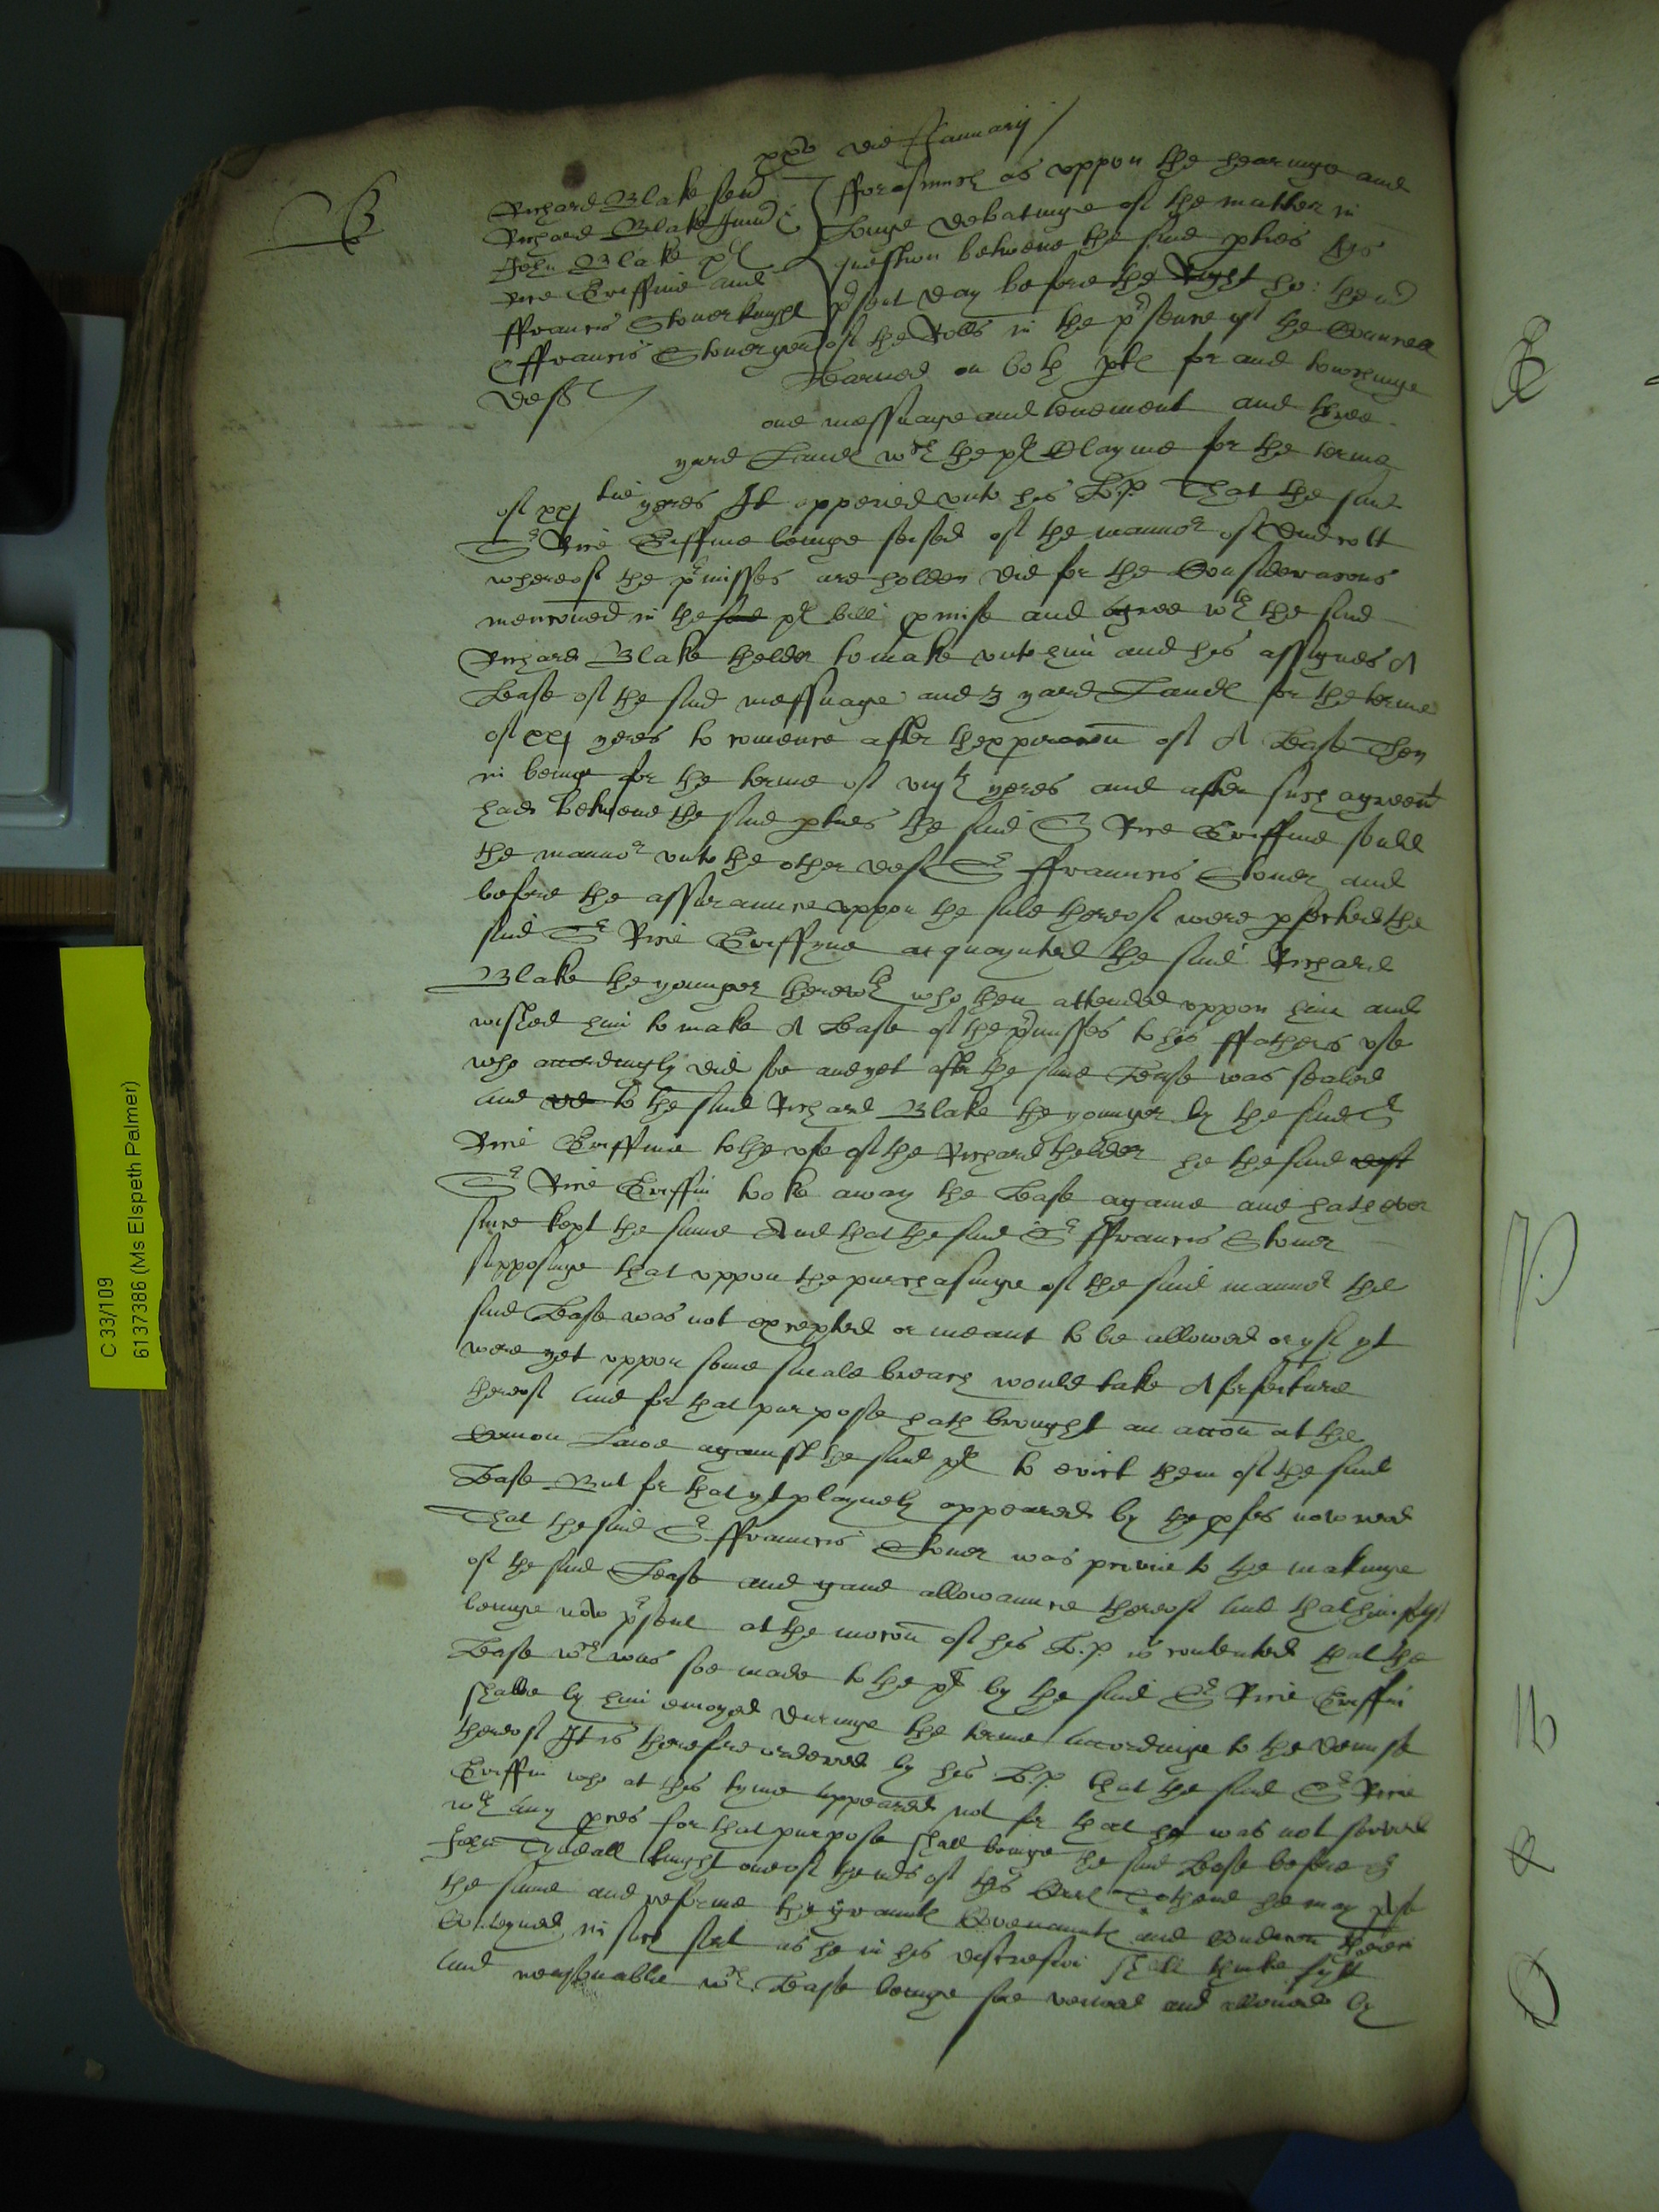 xxv die Januarij
B
Richard Blake sen
Richard Blake Jun &
John Blake pl
Rice Griffine and
ffrauncis Stoner knight
& ffrauncis Stoner gen
deft
fforasmuch as uppon the hearinge and
Longe debatinge of the matter in
question betwene the said pties this
p'sent day before the Right ho: the mr
of the Rolls in the p'sence of the Councell
Learned on both ptes for and towchinge
one messuage and tenement and three
yard Landes wch the pl Clayme for the terme
of xxj tie yeres It appeared unto his L.p. That the said
Sr Rice Griffine beinge seised of the mannor of
whereof the p'misses are holden did for the Consideracons
mencioned in the said pl bill pmise and agree wth the said
Richard Blake thelder to make unto him and his assignes A
Lease of the said messuage and 3 yard Landes for the terme
of xxj yeres to comence after thexpiracon of A Lease then
in beinge for the terme of yeres and after such agreemt
had betwene the said pties the said Sr Rice Griffine sould
the mannor unto the other deft Sr ffrauncis Stoner and
before the assuraunce uppon the sale thereof were pfected the
said Sr Rice Griffyne acquaynted the said Richard
Blake the younger therewth who then attended uppon him and
wished him to make A Lease of the p'misses to his ffathers use
who accordingly did soe and yet after the said Lease was sealed
and to the said Richard Blake the younger by the said Sr
Rice Griffine to the use of the Richard thelder he the said deft
Sr Rice Griffin tooke away the Lease againe and hath ever
since kept the same And that the said Sr ffrauncis Stoner
supposinge that uppon the purchasinge of the said mannor the
said Lease was not excepted or meant to be allowed or yf yt
were yet uppon some smale breach would take A forfeiture
thereof and for that purpose hath brought an accon at the
Comon Lawe against the said pl to evict them of the said
Lease But for that yt playnely appeared by the pfes now read
That the said Sr ffrauncis Stoner was privie to the makinge
of the said Lease and gave allowaunce thereof and that himself
beinge now p'sent at the mocon of his L.p. is contented that the
Lease wch was soe made to the pl by the said Sr Rice Griffin
shalbe by him enioyed duringe the terme accordinge to the demise
thereof It is therefore ordered by his L.p. that the said Sr Rice
Griffin who at this tyme appeared not for that he was not served
wth any pces for that purpose shall bringe the said Lease before Sr
John Tyndall knight one of the mrs of this Court To thend he may pvse
the same and reforme the graunte Covenaunte and Condicon therein
Conteyned in such sort as he in his discrescon shall thinke fytt
and reasonable wch Lease beinge soe veiwed and allowed by
C 33/109
6137386 (Ms Elspeth Palmer)